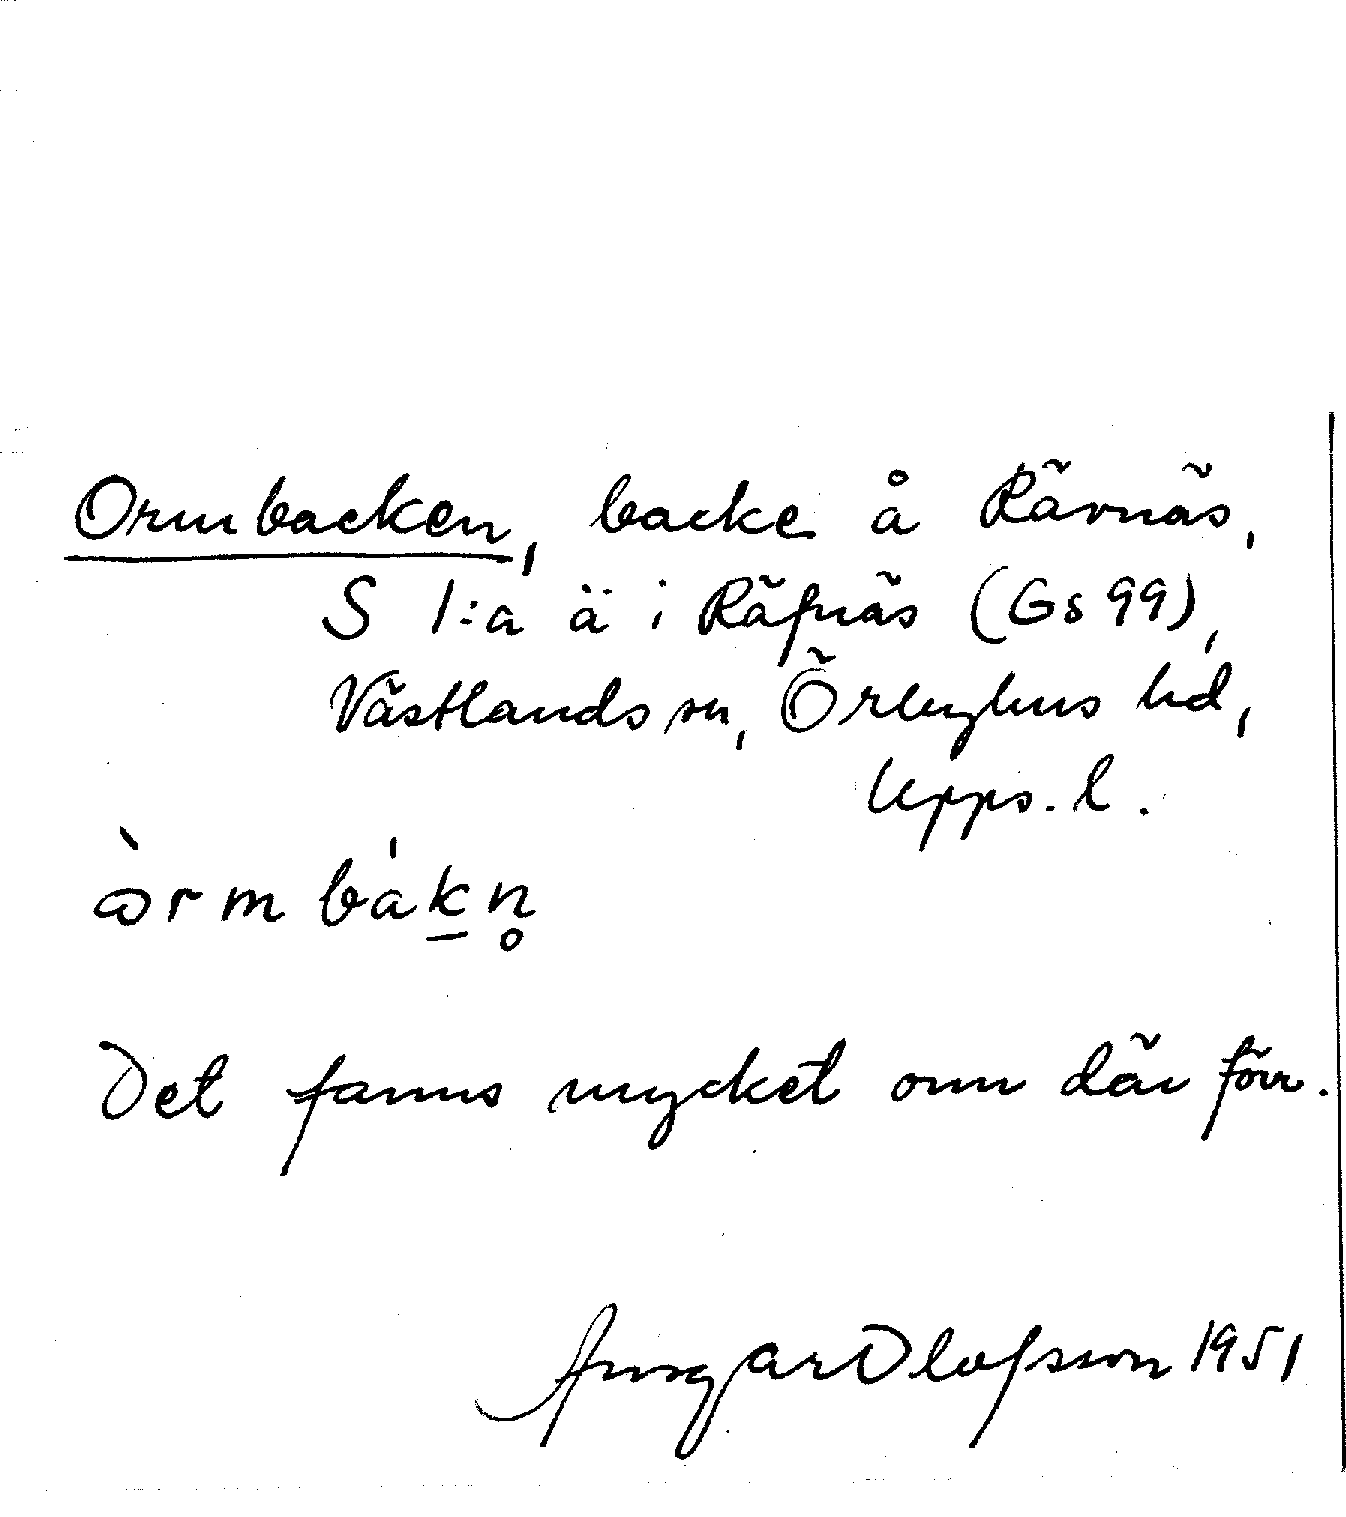 Ormbacken, backe å Rävnäs,
S 1:a ä i Räfnäs (Gs 99),
Västlands sn, Örbyhus hd,
Upps. l.
òrmbákn̥
Det fanns mycket orm där förr.
Ansgar Olofsson 1951